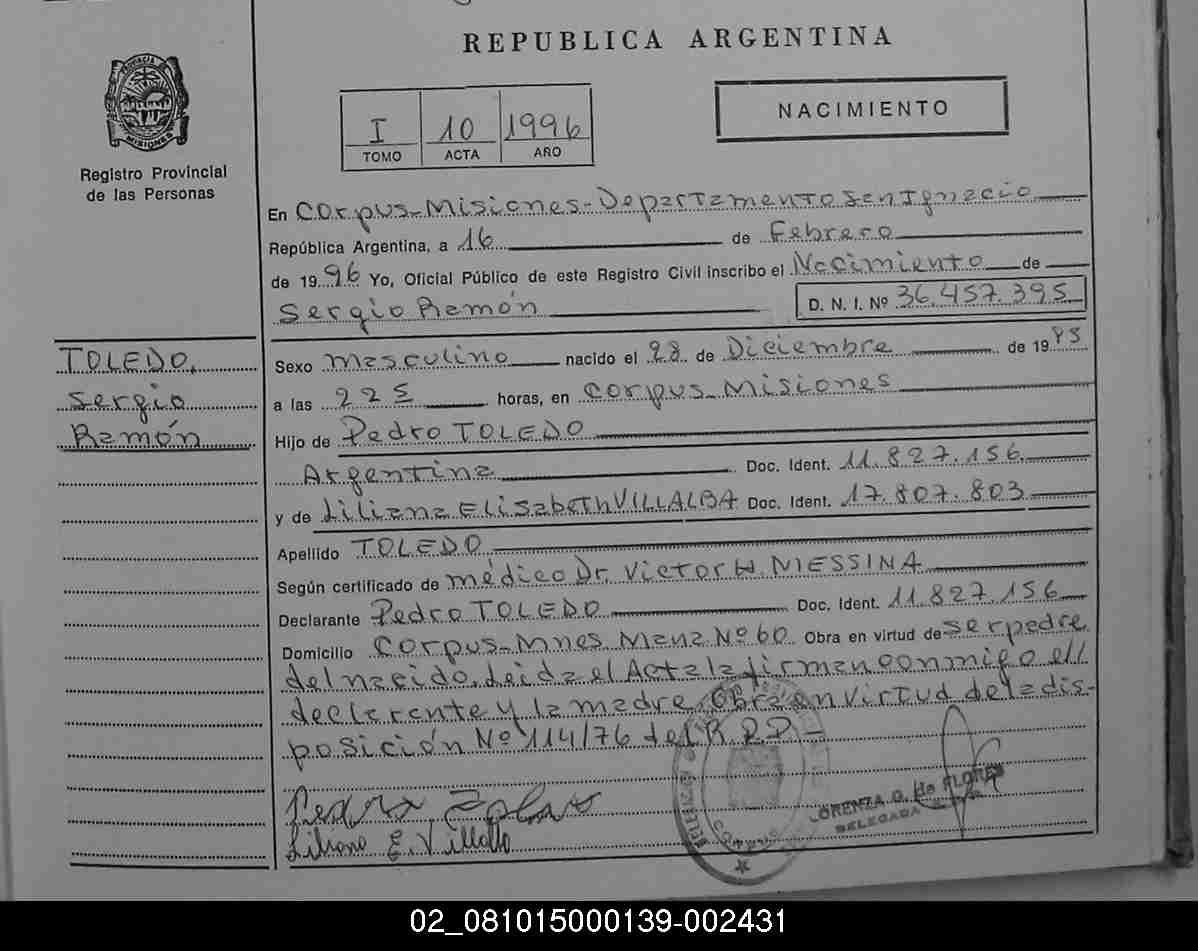 REPUBLICA ARGENTINA
PROVINCIA DE MISIONES
Registro Provincial
de las Personas
I 10 1996
TOMO ACTA AÑO
NACIMIENTO
En Corpus-Misiones-Departamento San Ignacio
República Argentina, a 16 de Febrero
de 1996 Yo, Oficial Público de este Registro Civil inscribo el Nacimiento de
Sergio Ramón D. N. I. Nº 36.457.395
TOLEDO,
Sergio
Ramón
Sexo masculino nacido el 28 de Diciembre de 19
a las horas, en Corpus-Misiones
Hijo de Pedro TOLEDO
Argentina Doc. Ident. 11.827.156
y de Liliana Elisabeth VILLALBA Doc. Ident. 17.807.803
Apellido TOLEDO
Según certificado de médico Dr. Victor H. MESSINA
Declarante Pedro TOLEDO Doc. Ident. 11.827.156
Domicilio Corpus-Mnes Manz Nº 60 Obra en virtud de ser padre
del nacido. Leida el Acta la firman conmigo el
declarante y la madre. Obra en virtud de la dis-
posición Nº 114/76 del R.P.P-
Pedro Toledo
Liliana E. Villalba
LORENZA G. de FLORES
DELEGADA
02_081015000139-002431